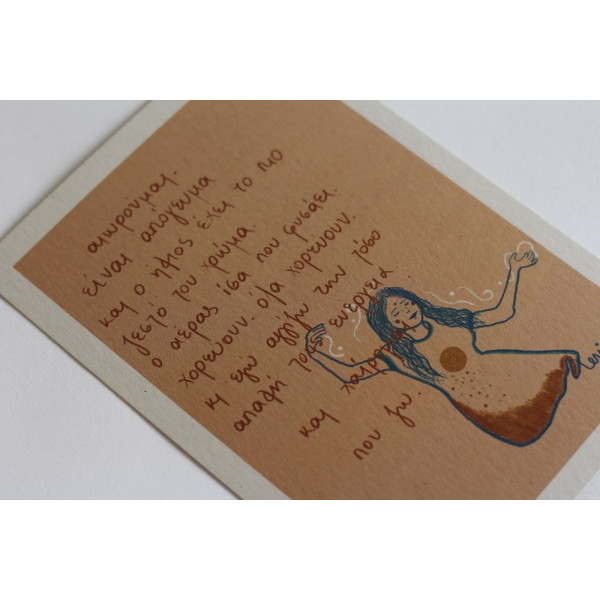 αιωρούμαι.
είναι απόγευμα
και ο ήλιος έχει το πιο
ζεστό του χρώμα.
ο αέρας ίσα που φυσάει.
χορεύουν. όλα χορεύουν.
κι εγώ αγγίζω την τόσο
απαλή τους ενέργεια
και χαίρομαι
που ζω.
Leni